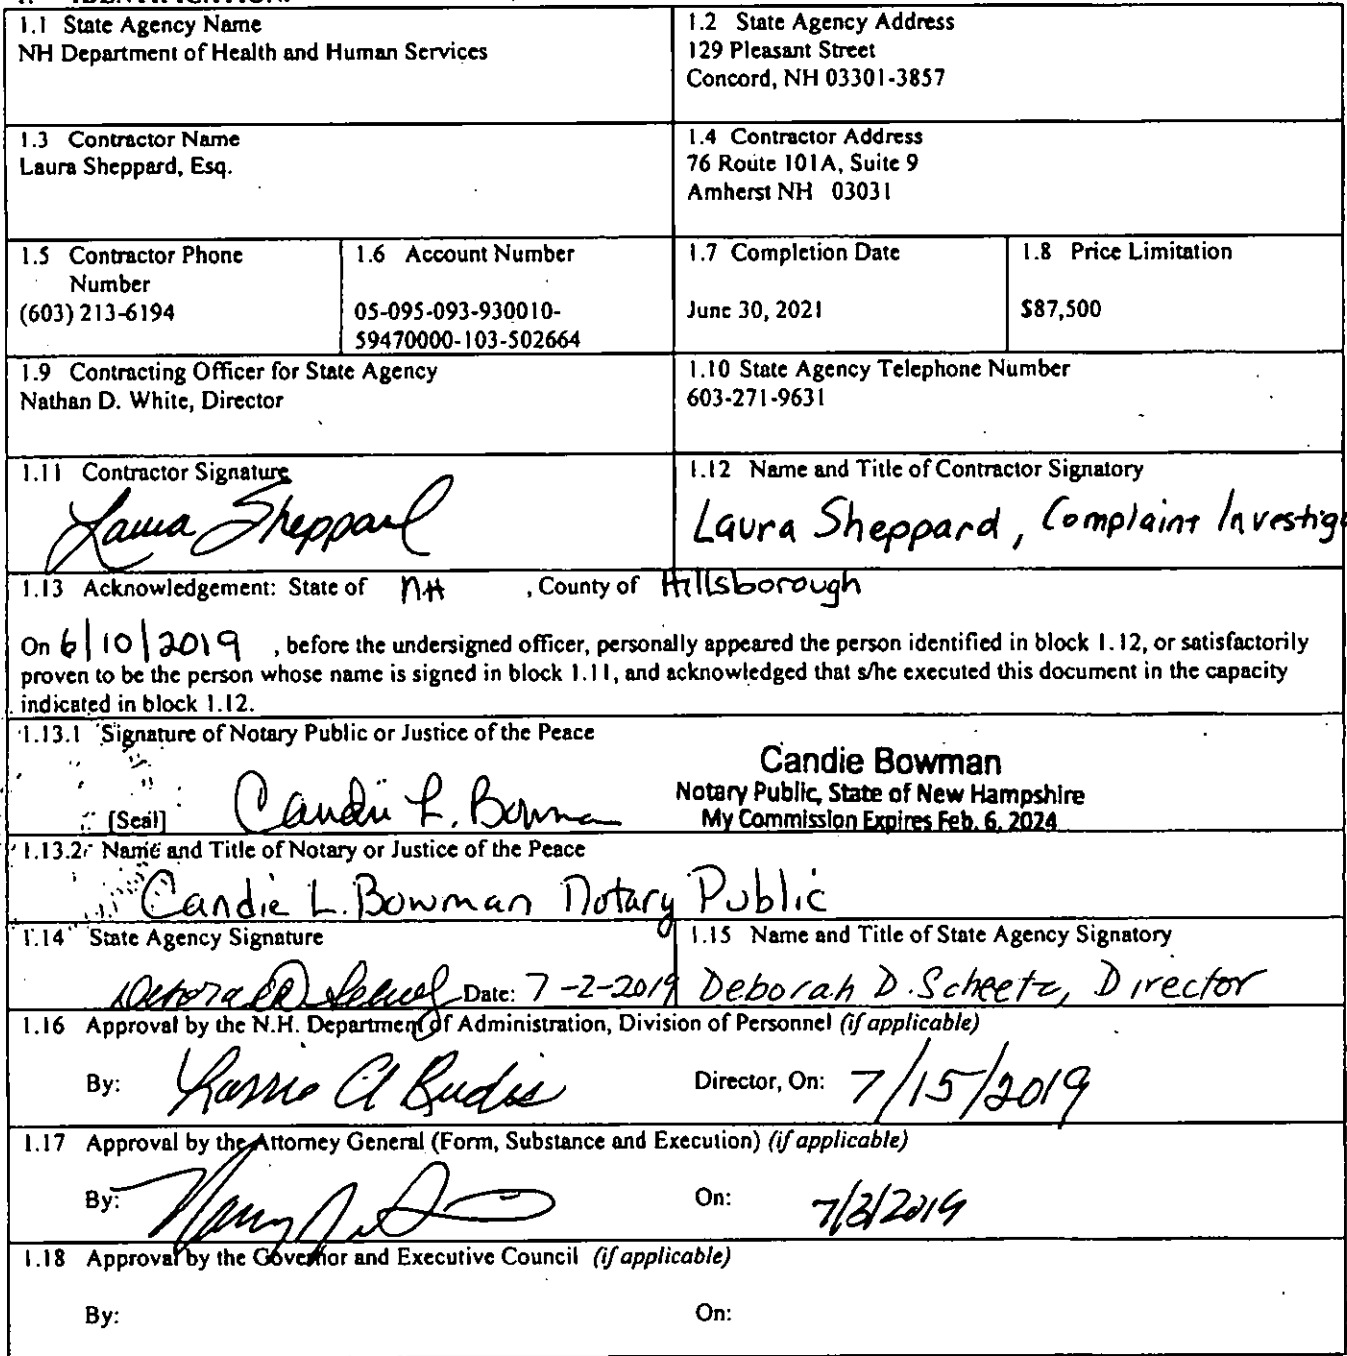 1. IDENTIFICATION.
1.1 State Agency Name
NH Department of Health and Human Services
1.2 State Agency Address
129 Pleasant Street
Concord, NH 03301-3857
1.3 Contractor Name
Laura Sheppard, Esq.
1.4 Contractor Address
76 Route 101A, Suite 9
Amherst NH 03031
1.5 Contractor Phone
Number
(603) 213-6194
1.6 Account Number
05-095-093-930010-
59470000-103-502664
1.7 Completion Date
June 30, 2021
1.8 Price Limitation
$87,500
1.9 Contracting Officer for State Agency
Nathan D. White, Director
1.10 State Agency Telephone Number
603-271-9631
1.11 Contractor Signature
Laura Sheppard
1.12 Name and Title of Contractor Signatory
Laura Sheppard, Complaint Investig
1.13 Acknowledgement: State of NH , County of Hillsborough
On 6/10/2019 , before the undersigned officer, personally appeared the person identified in block 1.12, or satisfactorily
proven to be the person whose name is signed in block 1.11, and acknowledged that s/he executed this document in the capacity
indicated in block 1.12.
1.13.1 Signature of Notary Public or Justice of the Peace
Candie Bowman
Notary Public, State of New Hampshire
My Commission Expires Feb. 6, 2024
[Seal] Candie L. Bowman
1.13.2 Name and Title of Notary or Justice of the Peace
Candie L. Bowman Notary Public
1.14 State Agency Signature
Date: 7-2-2019
1.15 Name and Title of State Agency Signatory
Deborah D. Scheetz, Director
1.16 Approval by the N.H. Department of Administration, Division of Personnel (if applicable)
By: Director, On: 7/15/2019
1.17 Approval by the Attorney General (Form, Substance and Execution) (if applicable)
By: On: 7/3/2019
1.18 Approval by the Governor and Executive Council (if applicable)
By: On: